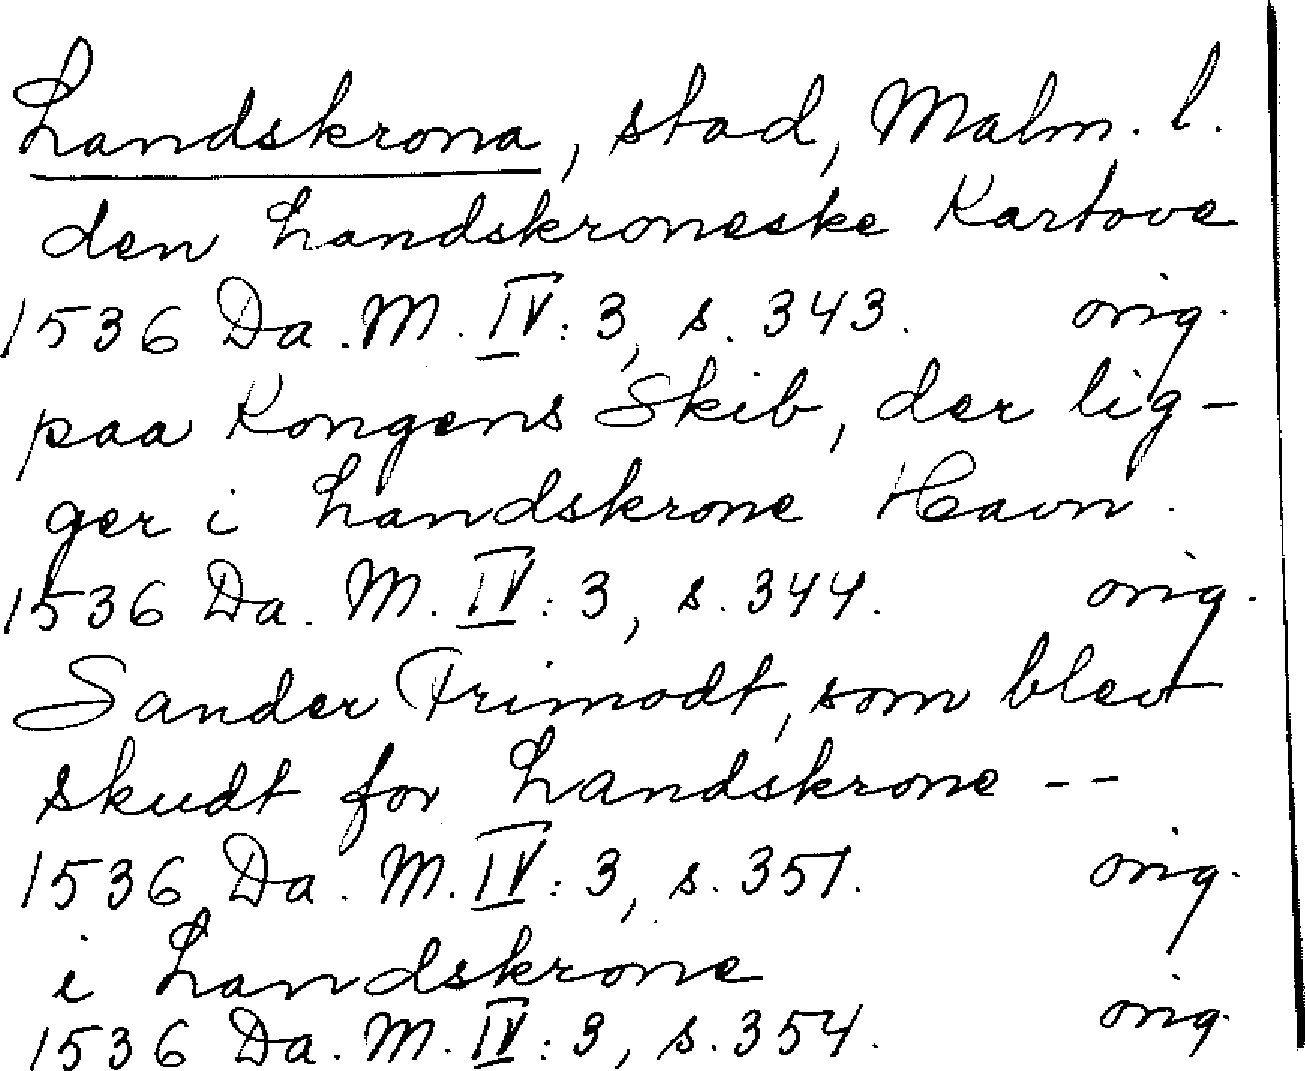 Landskrona, stad, Malm. l.
den Landskroneske Kartove
1536 Da. M. IV: 3, s. 343. orig.
paa Kongens Skib, der lig-
ger i Landskrone Havn.
1536 Da. M. IV: 3, s. 344. orig.
Sander Frimodt, som blev
skudt for Landskrone --
1536 Da. M. IV: 3, s. 351. orig.
i Landskrone
1536 Da. M. IV: 3, s. 354. orig.